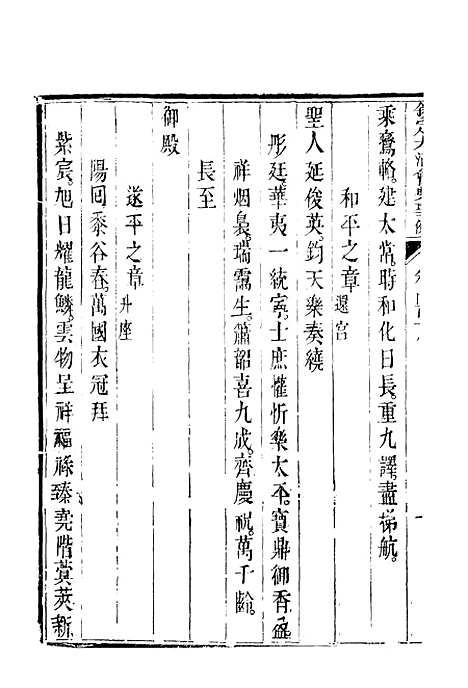 欽定大清會典事例
乘鸞輅。建太常。時和化日長。重九譯。盡梯航。
和平之章還宮
聖人延俊英。鈞天樂奏繞
彤廷。華夷一統寧。士庶懽忻樂太平。寶鼎御香盈。
祥烟裊。瑞靄生。簫韶喜九成。齊慶祝。萬千齡。
長至
御殿
遂平之章升座
陽回黍谷春。萬國衣冠拜
紫宸。旭日耀龍鱗。雲物呈祥福祿臻。堯階蓂莢新。